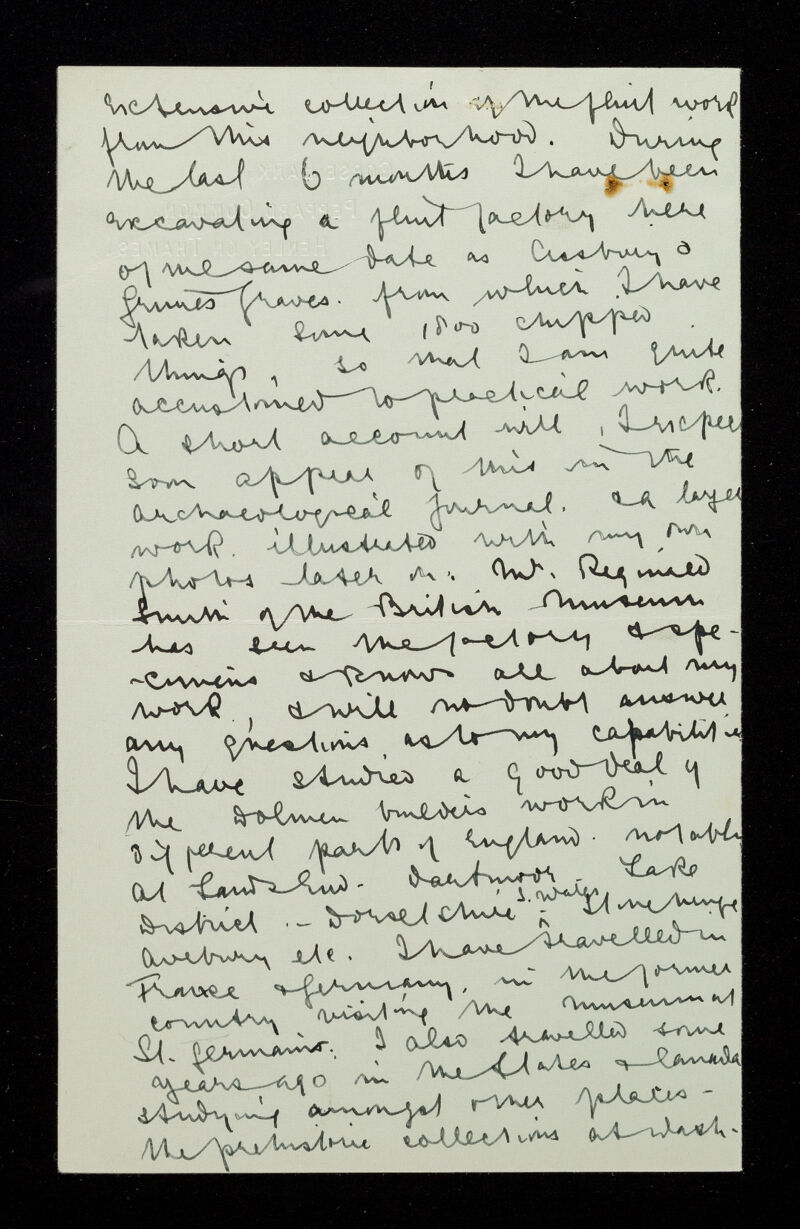 extensive collection of the flint work
from this neighborhood. During
the last 6 months I have been
excavating a flint factory here
of the same date as Cissbury &
Grimes Graves. from which I have
taken some 1800 chipped
things, so that I am quite
accustomed to practical work.
A short account will, I expect
soon appear of this in the
archaeological journal. & a larger
work. illustrated with my own
photos later on. Mr. Reginald
Smith of the British Museum
has seen the factory & spe-
-cimens & knows all about my
work, & will no doubt answer
any questions as to my capabilities
I have studied a good deal of
the Dolmen builders work in
different parts of England. notably
at Lands End - Dartmoor - Lake
District - Dorsetshire S. Wales Stonehenge
Avebury etc. I have travelled in
France & Germany, in the former
country visiting the museum at
St. Germains. I also travelled some
years ago in the States & Canada
studying amongst other places -
the prehistoric collections at Wash-